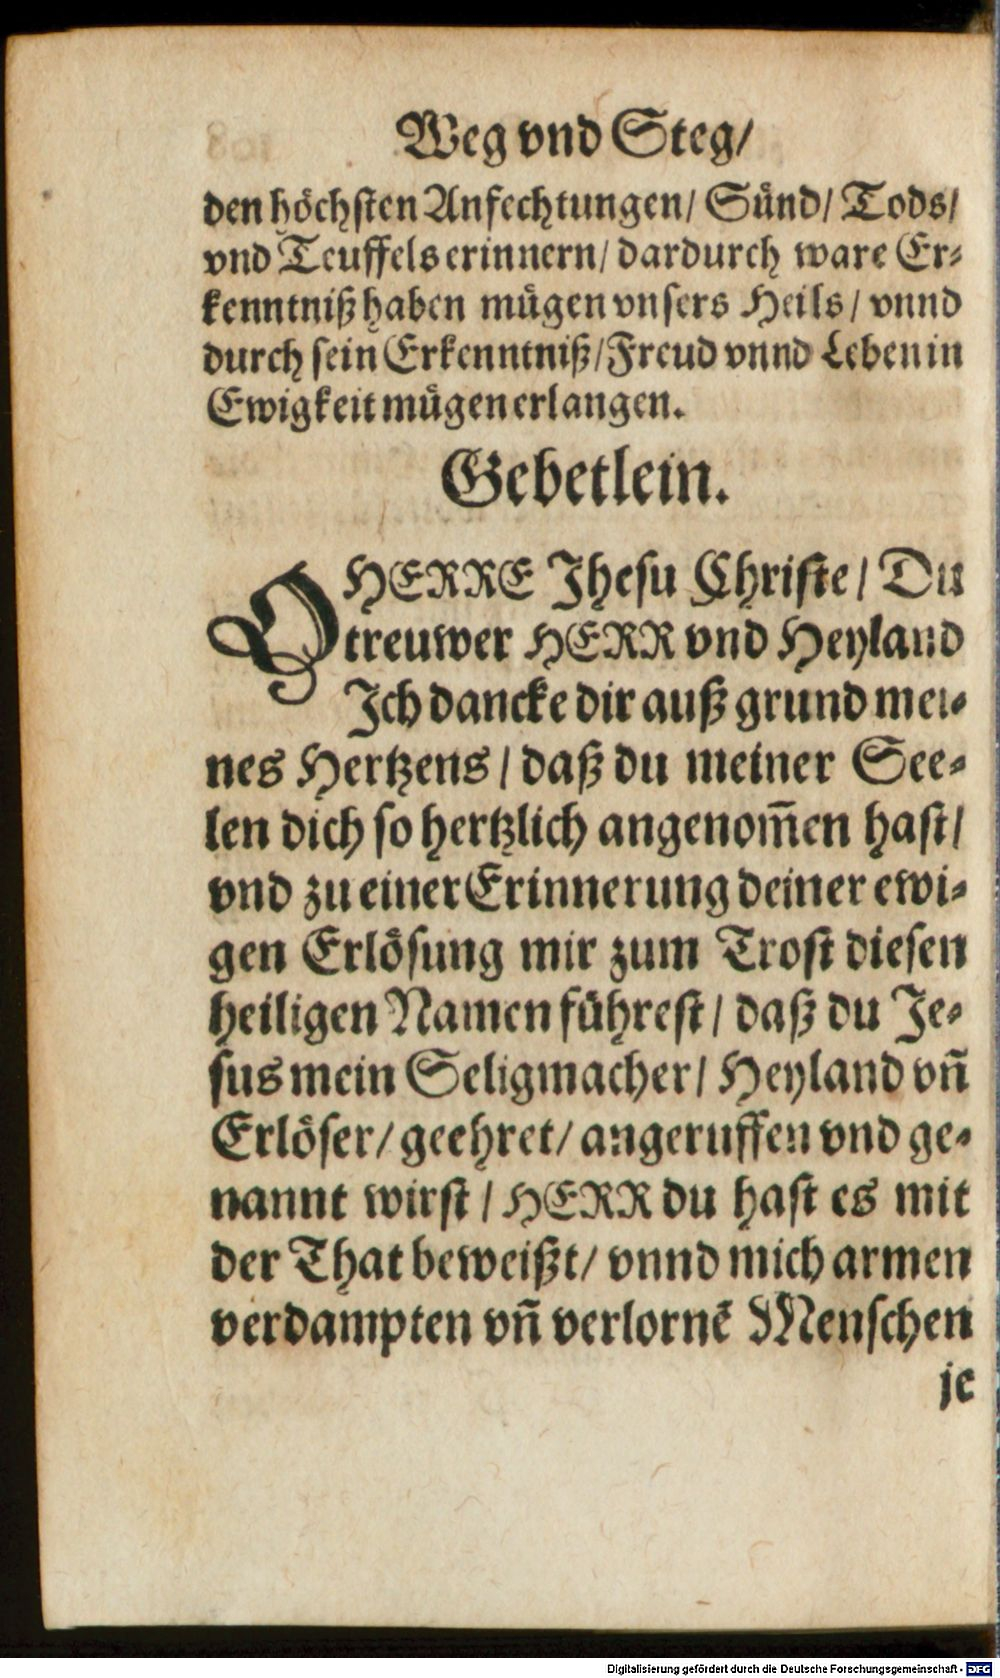 Weg vnd Steg/
den höchsten Anfechtungen/ Sünd/ Tods/
vnd Teuffels erinnern/ dardurch ware Er-
kenntniß haben mügen vnsers Heils/ vnnd
durch sein Erkenntniß/ Freud vnnd Leben in
Ewigkeit mügen erlangen.
Gebetlein.
O HERRE Jhesu Christe/ Du
treuwer HERR vnd Heyland
Jch dancke dir auß grund mei-
nes Hertzens/ daß du meiner See-
len dich so hertzlich angenom̃en hast/
vnd zu einer Erinnerung deiner ewi-
gen Erlösung mir zum Trost diesen
heiligen Namen führest/ daß du Je-
sus mein Seligmacher/ Heyland vñ
Erlöser/ geehret/ angeruffen vnd ge-
nannt wirst/ HERR du hast es mit
der That beweißt/ vnnd mich armen
verdampten vñ verlornẽ Menschen
je
Digitalisierung gefördert durch die Deutsche Forschungsgemeinschaft - DFG